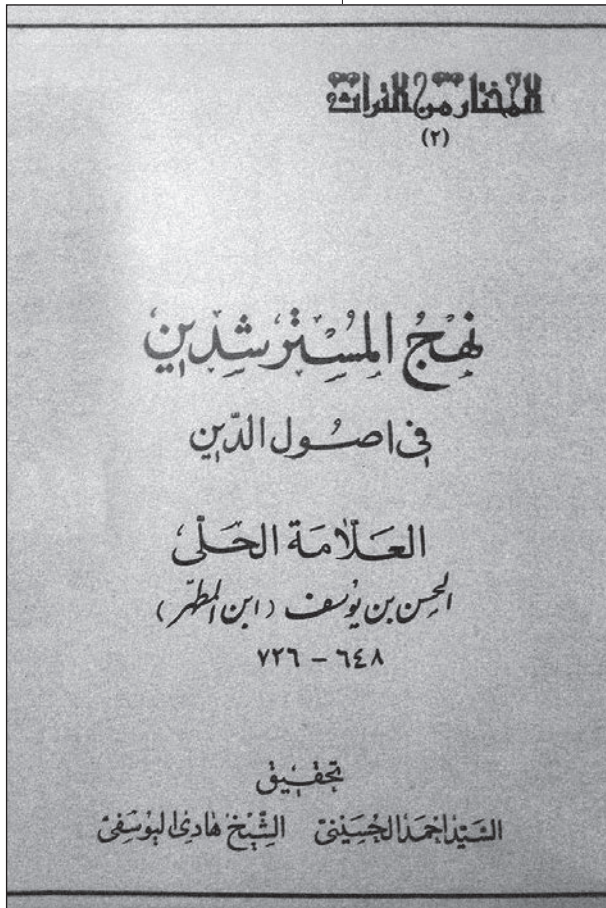 المختار من التراث
(٢)
نهج المسترشدين
في اصول الدين
العلامة الحلي
الحسن بن يوسف (ابن المطهر)
٦٤٨ - ٧٢٦
تحقيق
السيد احمد الحسيني الشيخ هادي اليوسفي